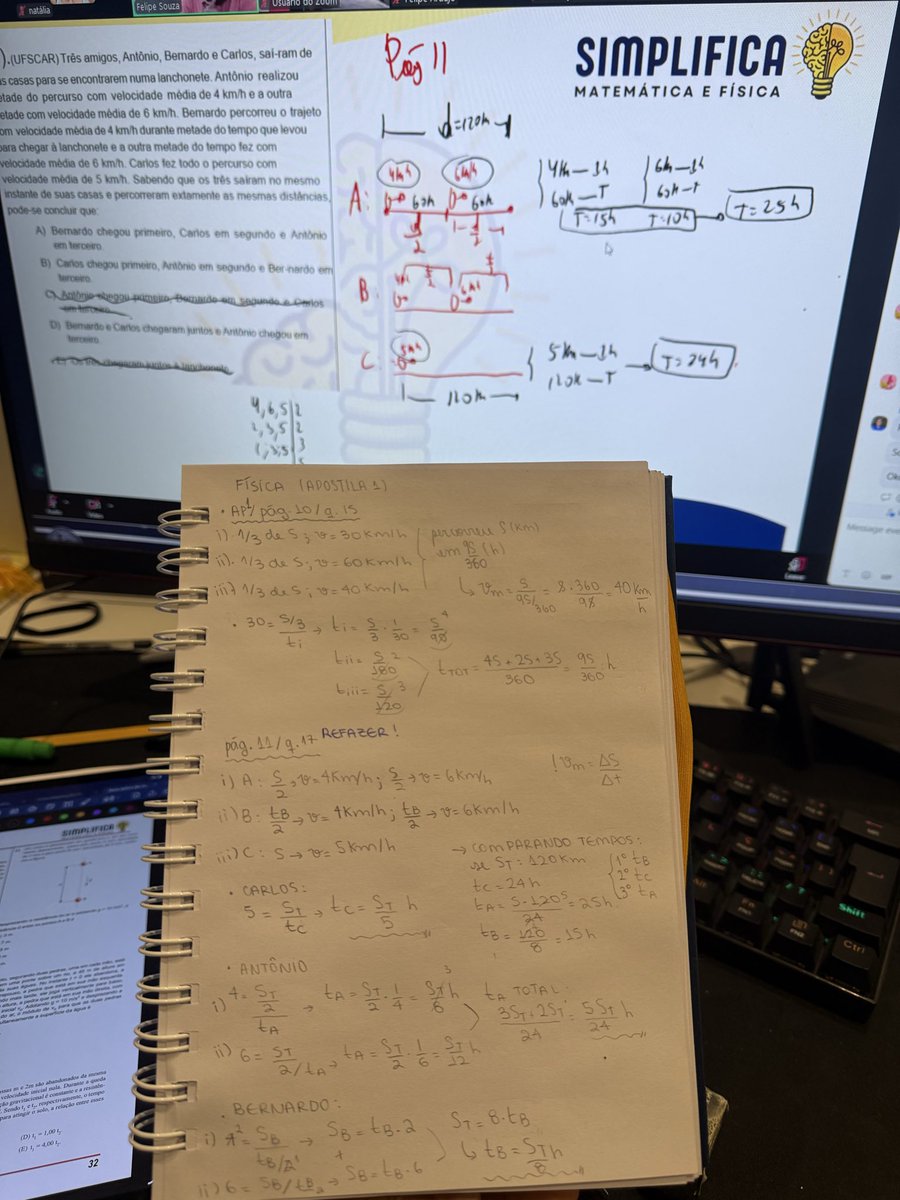 natália
Felipe Souza
Usuário do zoom
).(UFSCAR) Três amigos, Antônio, Bernardo e Carlos, saí-ram de
as casas para se encontrarem numa lanchonete. Antônio realizou
etade do percurso com velocidade média de 4 km/h e a outra
etade com velocidade média de 6 km/h. Bernardo percorreu o trajeto
om velocidade média de 4 km/h durante metade do tempo que levou
para chegar à lanchonete e a outra metade do tempo fez com
velocidade média de 6 km/h. Carlos fez todo o percurso com
velocidade média de 5 km/h. Sabendo que os três saíram no mesmo
instante de suas casas e percorreram extamente as mesmas distâncias,
pode-se concluir que:
A) Bernardo chegou primeiro, Carlos em segundo e Antônio
em terceiro.
B) Carlos chegou primeiro, Antônio em segundo e Ber-nardo em
terceiro.
C) Antônio chegou primeiro, Bernardo em segundo e Carlos
em terceiro.
D) Bernardo e Carlos chegaram juntos e Antônio chegou em
terceiro.
E) Os três chegaram juntos à lanchonete.
4, 6, 5 | 2
2, 3, 5 | 2
1, 3, 5 | 3
Pág 11
SIMPLIFICA
MATEMÁTICA E FÍSICA
d=120k
A:
B:
C:
4Km — 1h
60k — T
6k — 1h
60k — T
T=15h T=10h
T=25h
5Km — 1h
120k — T
T=24h
120k
Message everyone
FÍSICA (APOSTILA 1)
• AP1/ pág. 10/ q. 15
i) 1/3 de S; v = 30 Km/h
ii) 1/3 de S; v = 60 Km/h
iii) 1/3 de S; v = 40 Km/h
percorreu S (Km)
em 9S/360 (h)
↳ vm = S/(9S/360) = S·360/9S = 40 Km/h
• 30 = (S/3)/ti → ti = S/3 · 1/30 = S/90 4
tii = S/180 2
tiii = S/120 3
tTOT = (4S + 2S + 3S)/360 = 9S/360 h
pág. 11/ q. 17 REFAZER!
i) A: S/2 → v = 4Km/h; S/2 → v = 6Km/h
! vm = ΔS/Δt
ii) B: tB/2 → v = 4Km/h; tB/2 → v = 6Km/h
iii) C: S → v = 5Km/h
→ COMPARANDO TEMPOS:
se ST: 120 Km
tC = 24 h
tA = 5·120/24 = 25h
tB = 120/8 = 15h
1º tB
2º tC
3º tA
• CARLOS:
5 = ST/tC → tC = ST/5 h
• ANTÔNIO
i) 4 = (ST/2)/tA → tA = ST/2 · 1/4 = ST/8 h 3
ii) 6 = ST/2/tA → tA = ST/2 · 1/6 = ST/12 h
tA TOTAL:
(3ST + 2ST)/24 = 5ST/24 h
• BERNARDO:
i) 4 = SB/(tB/2) → SB = tB · 2
ii) 6 = SB/tB → SB = tB · 6
ST = 8 · tB
↳ tB = ST/8 h
SIMPLIFICA
(D) t₁ = 1,00 t₂
(E) t₁ = 4,00 t₂
32
Shift
Ctrl